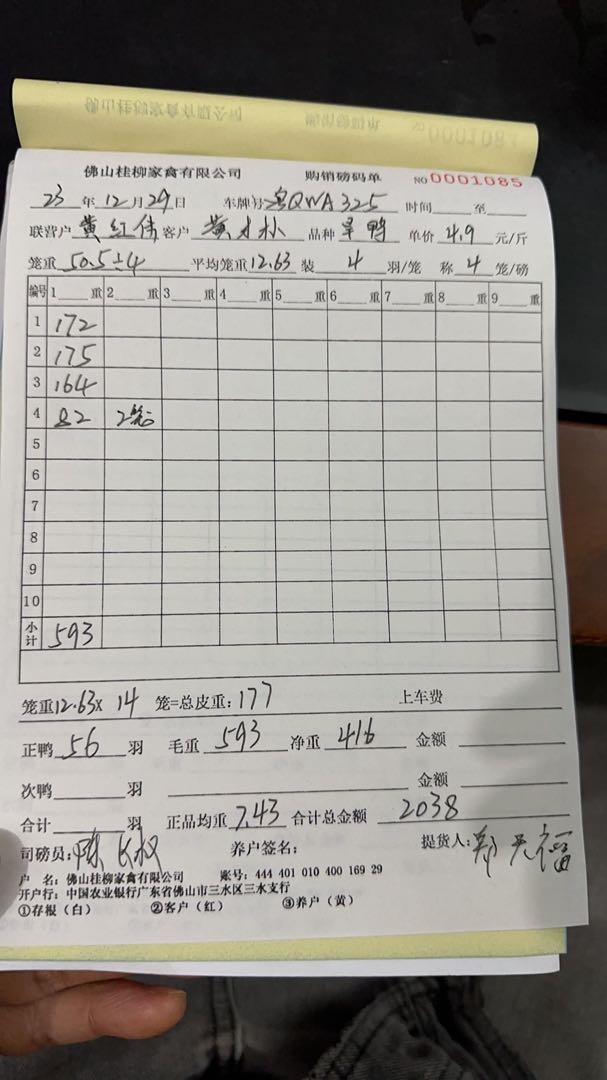 佛山桂柳家禽有限公司 购销磅码单 NO 0001085
23年12月29日 车牌号粤QWA325 时间____至____
联营户 黄红伟 客户 黄才朴 品种 旱鸭 单价 4.9 元/斤
笼重 50.5÷4 平均笼重12.63 装 4 羽/笼 称 4 笼/磅
编号 1____重 2____重 3____重 4____重 5____重 6____重 7____重 8____重 9____重
1 172
2 175
3 164
4 82 2笼
5
6
7
8
9
10
小计 593
笼重12.63× 14 笼=总皮重:177 上车费
正鸭 56 羽 毛重 593 净重 416 金额
次鸭____羽 金额
合计____羽 正品均重 7.43 合计总金额 2038
司磅员:陈 养户签名: 提货人:郑 福
户 名:佛山桂柳家禽有限公司 账号:444 401 010 400 169 29
开户行:中国农业银行广东省佛山市三水区三水支行
①存根(白) ②客户(红) ③养户(黄)